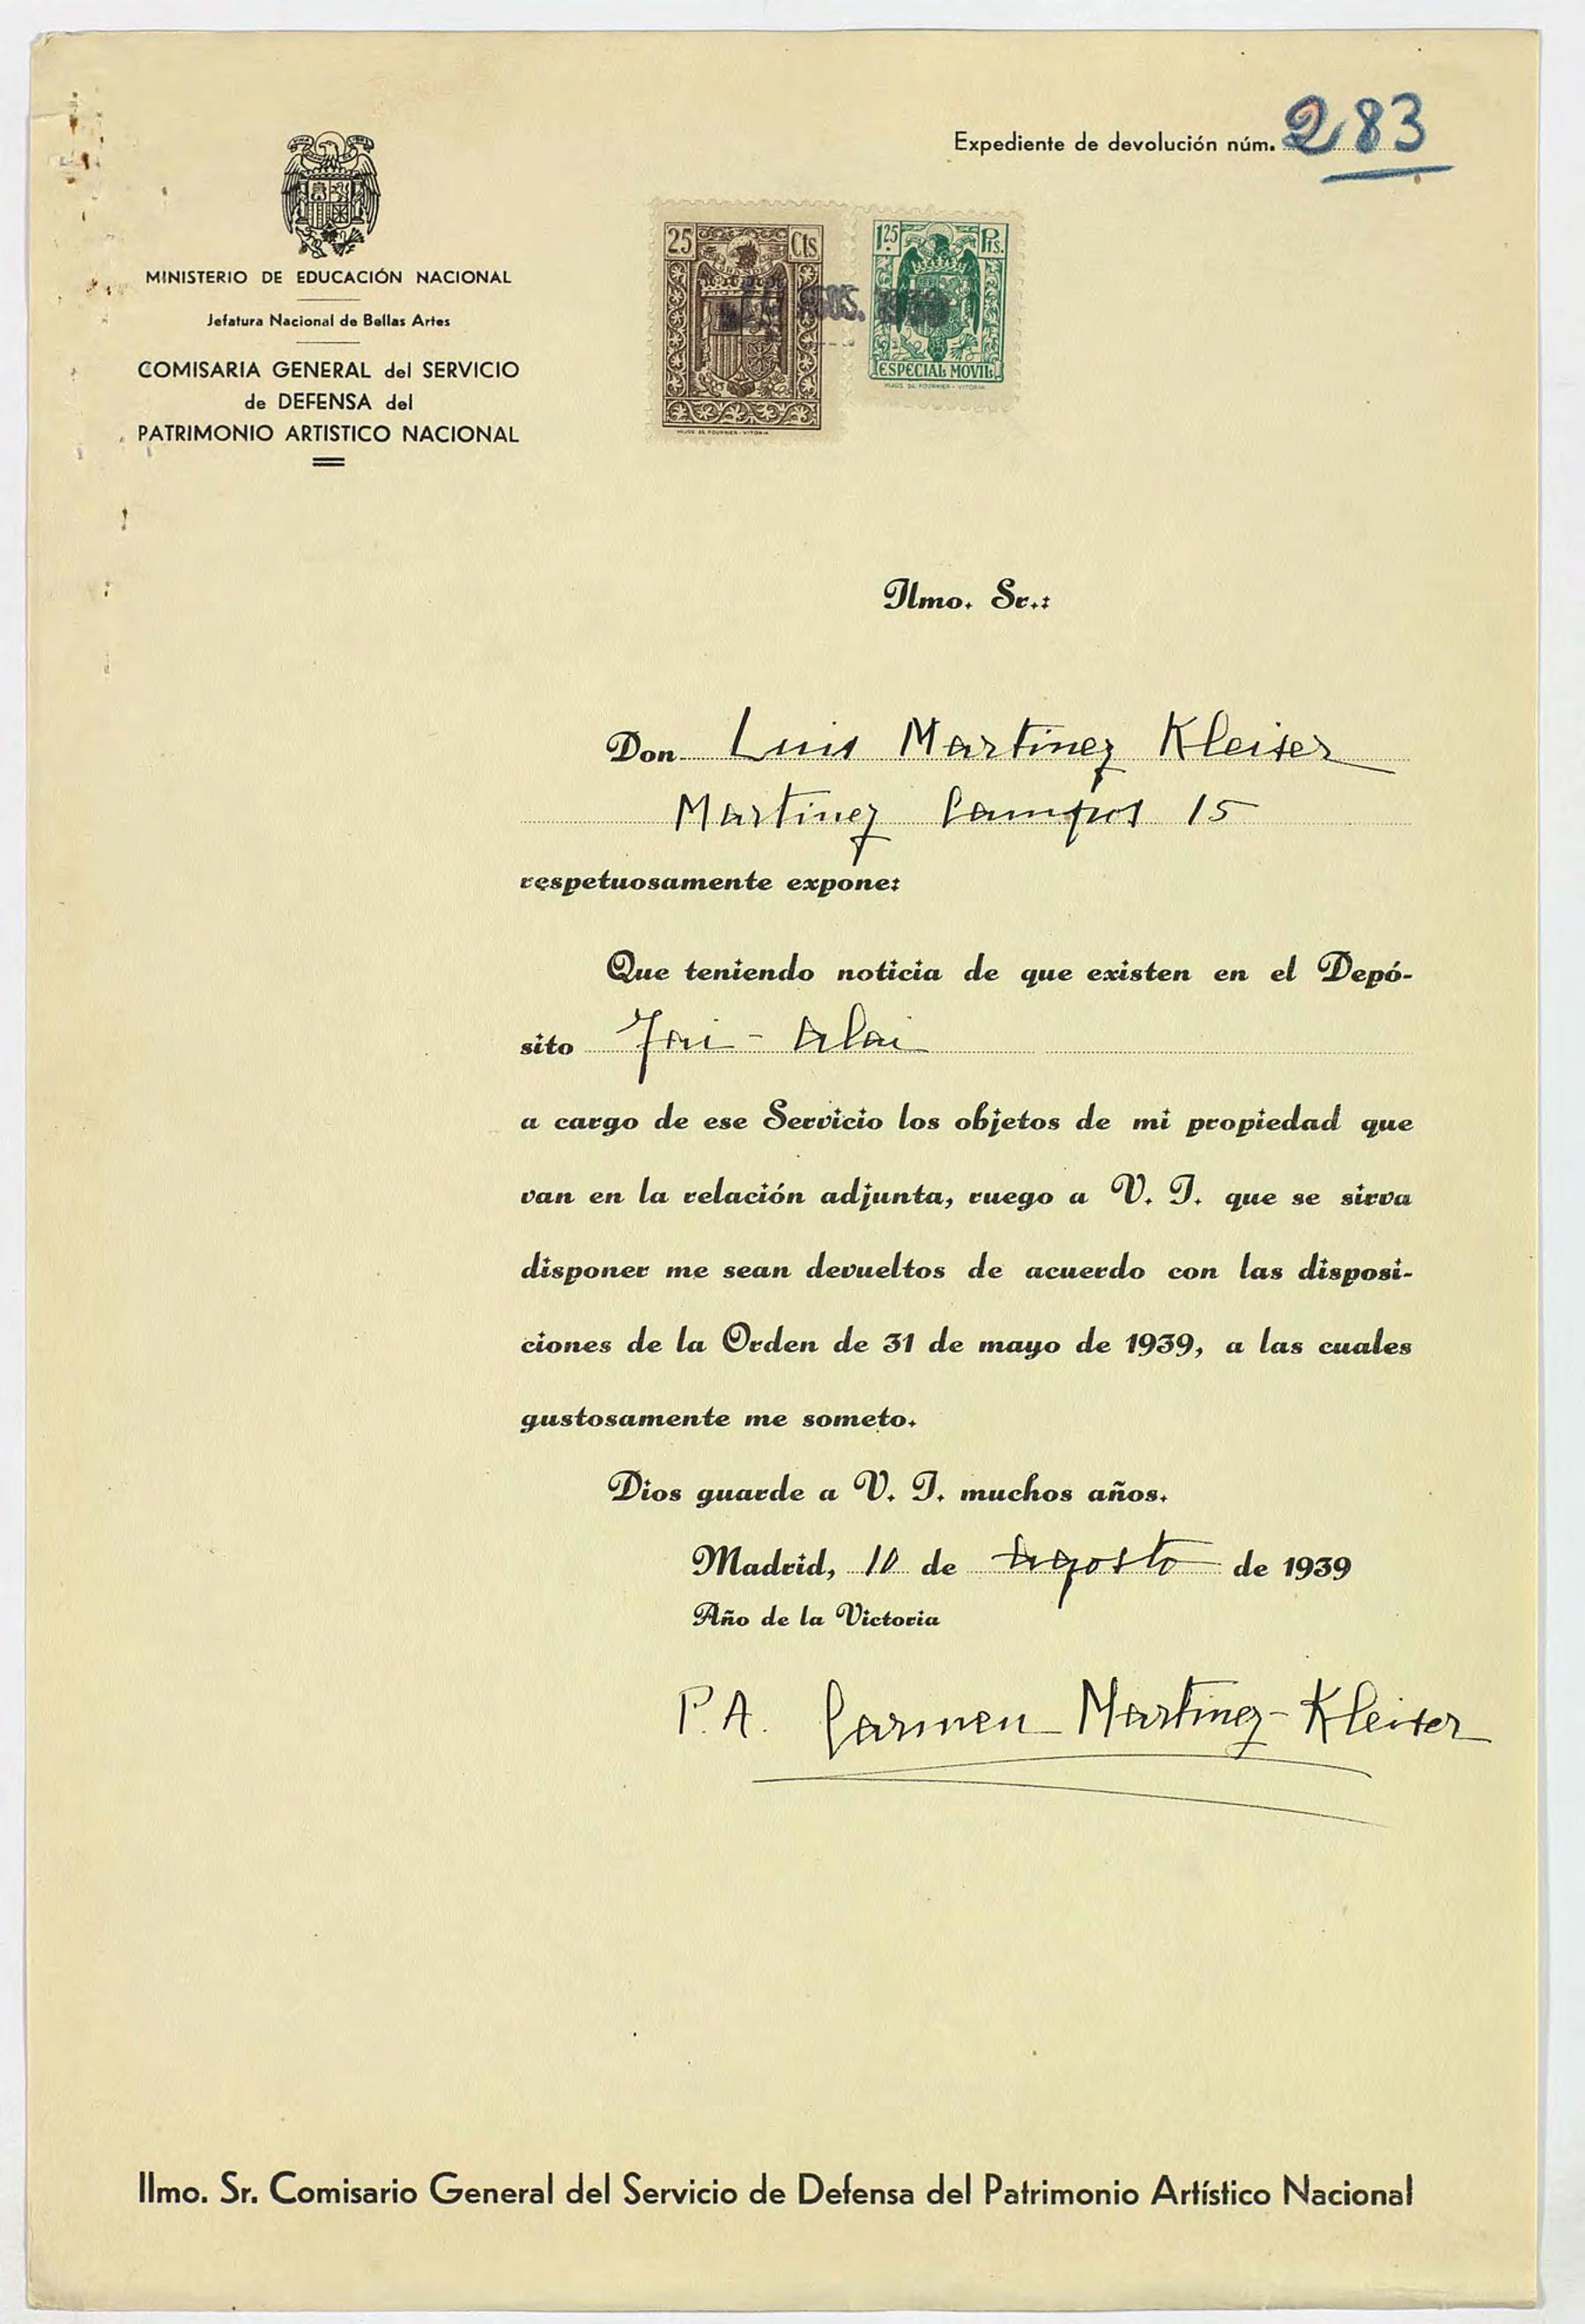 Expediente de devolución núm. 283
MINISTERIO DE EDUCACIÓN NACIONAL
Jefatura Nacional de Bellas Artes
COMISARIA GENERAL del SERVICIO
de DEFENSA del
PATRIMONIO ARTISTICO NACIONAL
25 Cts
1.25 Pts.
AGOS.
ESPECIAL MOVIL
HIJOS DE FOURNIER - VITORIA
HIJOS DE FOURNIER - VITORIA
Ilmo. Sr.:
Don Luis Martinez Kleiser
Martinez Campos 15
respetuosamente expone:
Que teniendo noticia de que existen en el Depó-
sito Jai-Alai
a cargo de ese Servicio los objetos de mi propiedad que
van en la relación adjunta, ruego a V. I. que se sirva
disponer me sean devueltos de acuerdo con las disposi-
ciones de la Orden de 31 de mayo de 1939, a las cuales
gustosamente me someto.
Dios guarde a V. I. muchos años.
Madrid, 10 de Agosto de 1939
Año de la Victoria
P.A. Carmen Martinez-Kleiser
Ilmo. Sr. Comisario General del Servicio de Defensa del Patrimonio Artístico Nacional